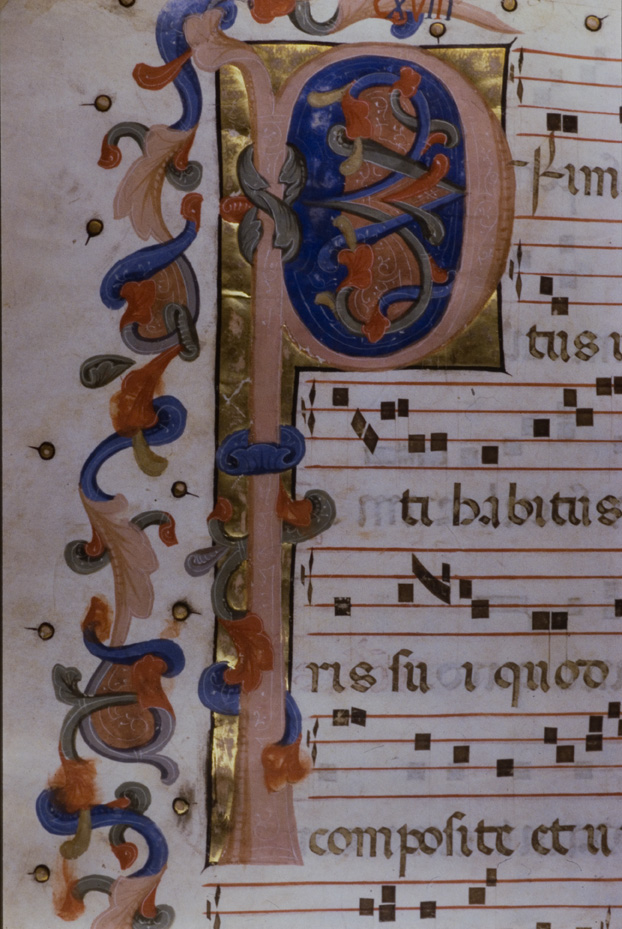 cxviii
P
tus
ti habitus
ris ſu i quod
compoſite et